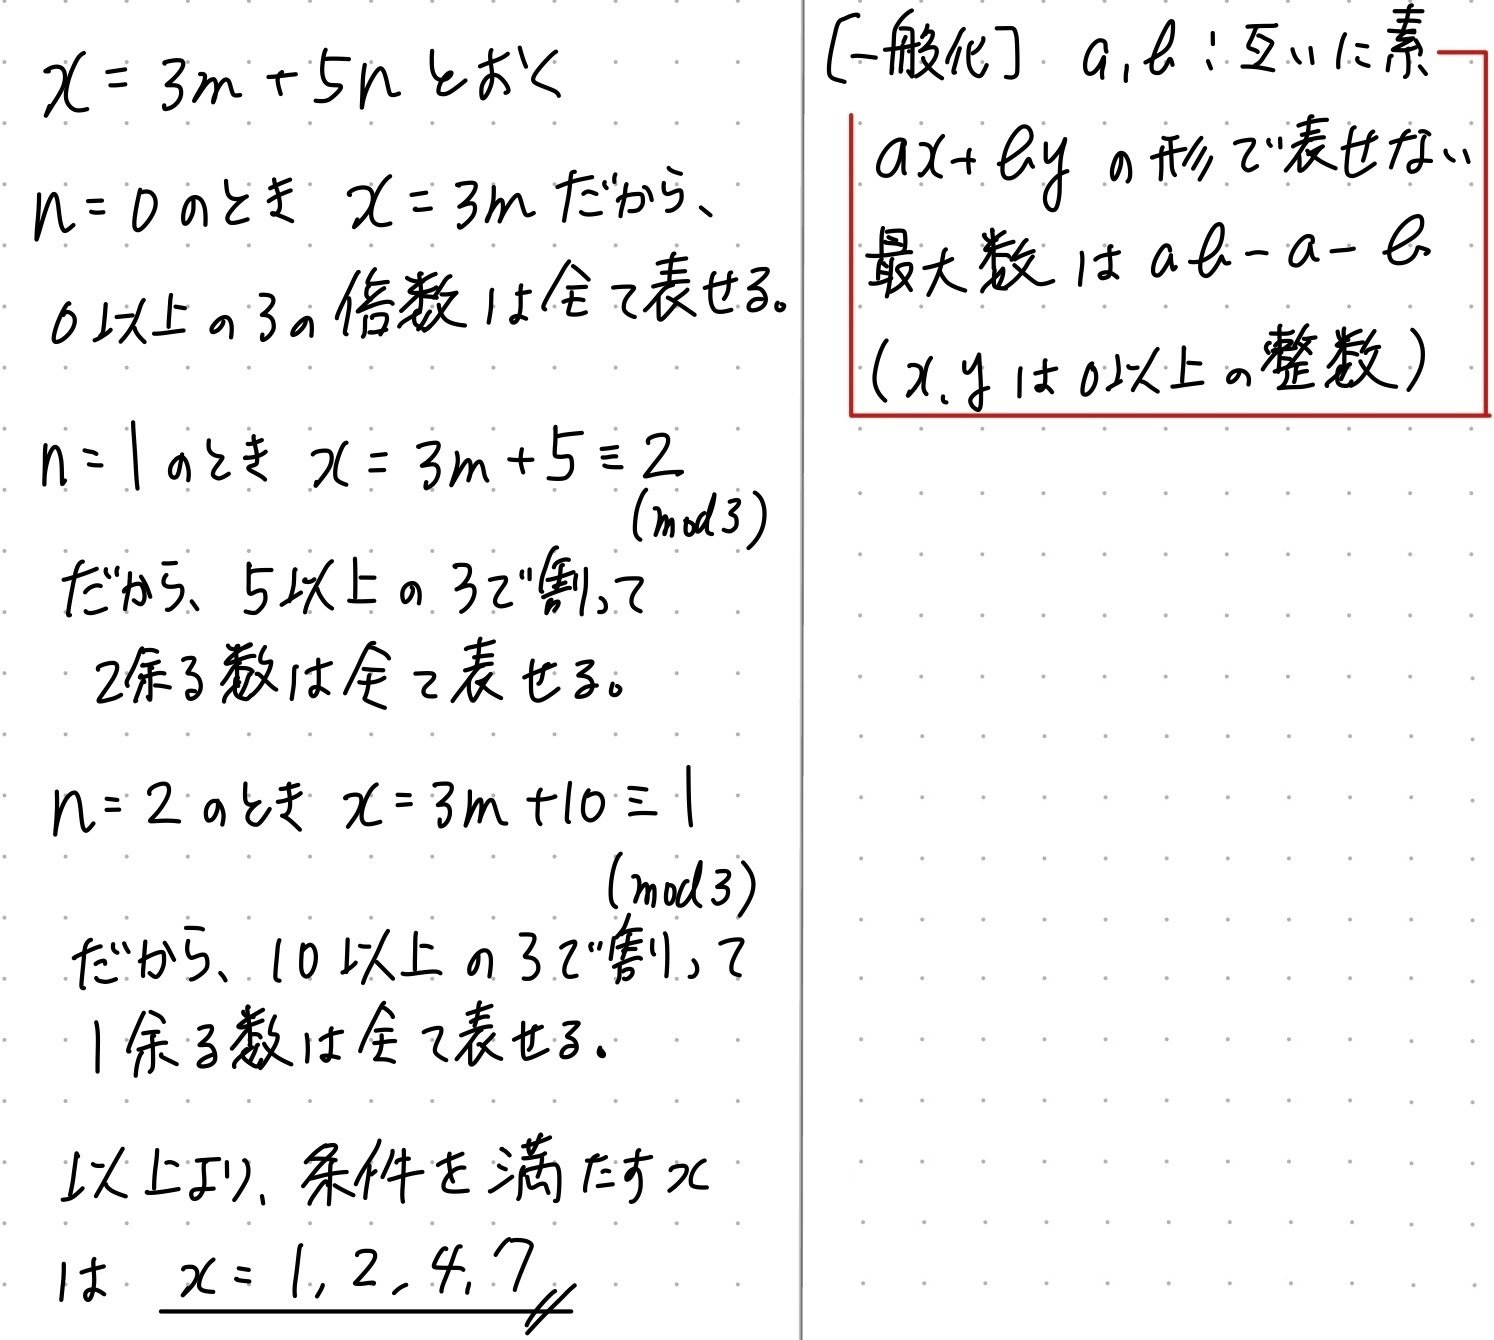 x = 3m + 5n とおく
n = 0 のとき x = 3m だから、
0以上の3の倍数は全て表せる。
n = 1 のとき x = 3m + 5 ≡ 2
(mod 3)
だから、5以上の3で割って
2余る数は全て表せる。
n = 2 のとき x = 3m + 10 ≡ 1
(mod 3)
だから、10以上の3で割って
1余る数は全て表せる.
以上より、条件を満たすx
は x = 1, 2, 4, 7
[一般化] a, b : 互いに素
ax + by の形で表せない
最大数は ab - a - b
(x, y は 0以上の整数)